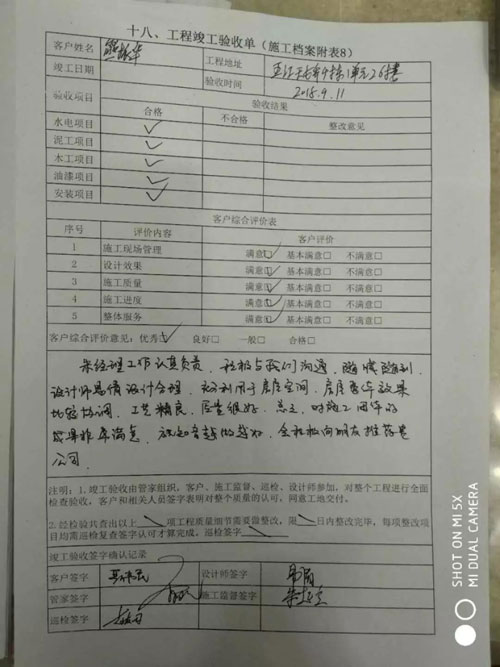 十八、工程竣工验收单（施工档案附表8）
客户姓名 工程地址
竣工日期 验收时间 2018.9.11
验收项目 验收结果
合格 不合格 整改意见
水电项目 ✓
泥工项目 ✓
木工项目 ✓
油漆项目 ✓
安装项目 ✓
客户综合评价表
序号 评价内容 客户评价
1 施工现场管理 满意☑ 基本满意□ 不满意□
2 设计效果 满意☑ 基本满意□ 不满意□
3 施工质量 满意☑ 基本满意□ 不满意□
4 施工进度 满意☑ 基本满意□ 不满意□
5 整体服务 满意☑ 基本满意□ 不满意□
客户综合评价意见：优秀☑ 良好□ 一般□ 合格□
朱经理工作认真负责，积极与我们沟通，随喊随到，
设计师思倩设计合理，充分利用了房屋空间，房屋整体效果
比较协调，工艺精良，质量很好。总之，对施工团体的
成果非常满意，欢迎越做越好，会积极向朋友推荐贵
公司。
注明：1.竣工验收由管家组织，客户、施工监督、巡检、设计师参加，对整个工程进行全面
检查验收，客户和相关人员签字表明对整个质量的认可，同意工地交付。
2.经检验共查出以上 项工程质量细节需要做整改，限 日内整改完毕，每项整改项
目均需巡检复查签字认可才算完成，巡检签字
竣工验收签字确认记录
客户签字 设计师签字
管家签字 施工监督签字
巡检签字
SHOT ON MI 5X
MI DUAL CAMERA